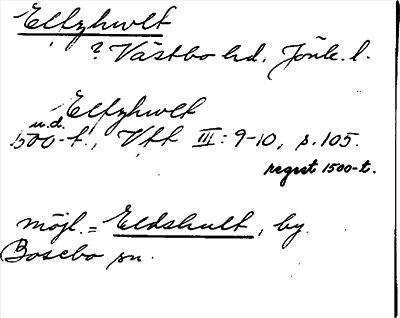 Elfzhwlt
? Västbo hd. Jönk. l.
Elfzhwlt
u.d.
1500-t., Vtt III: 9-10, s. 105.
regest 1500-t.
möjl. = Eldshult, by
Bosebo sn.